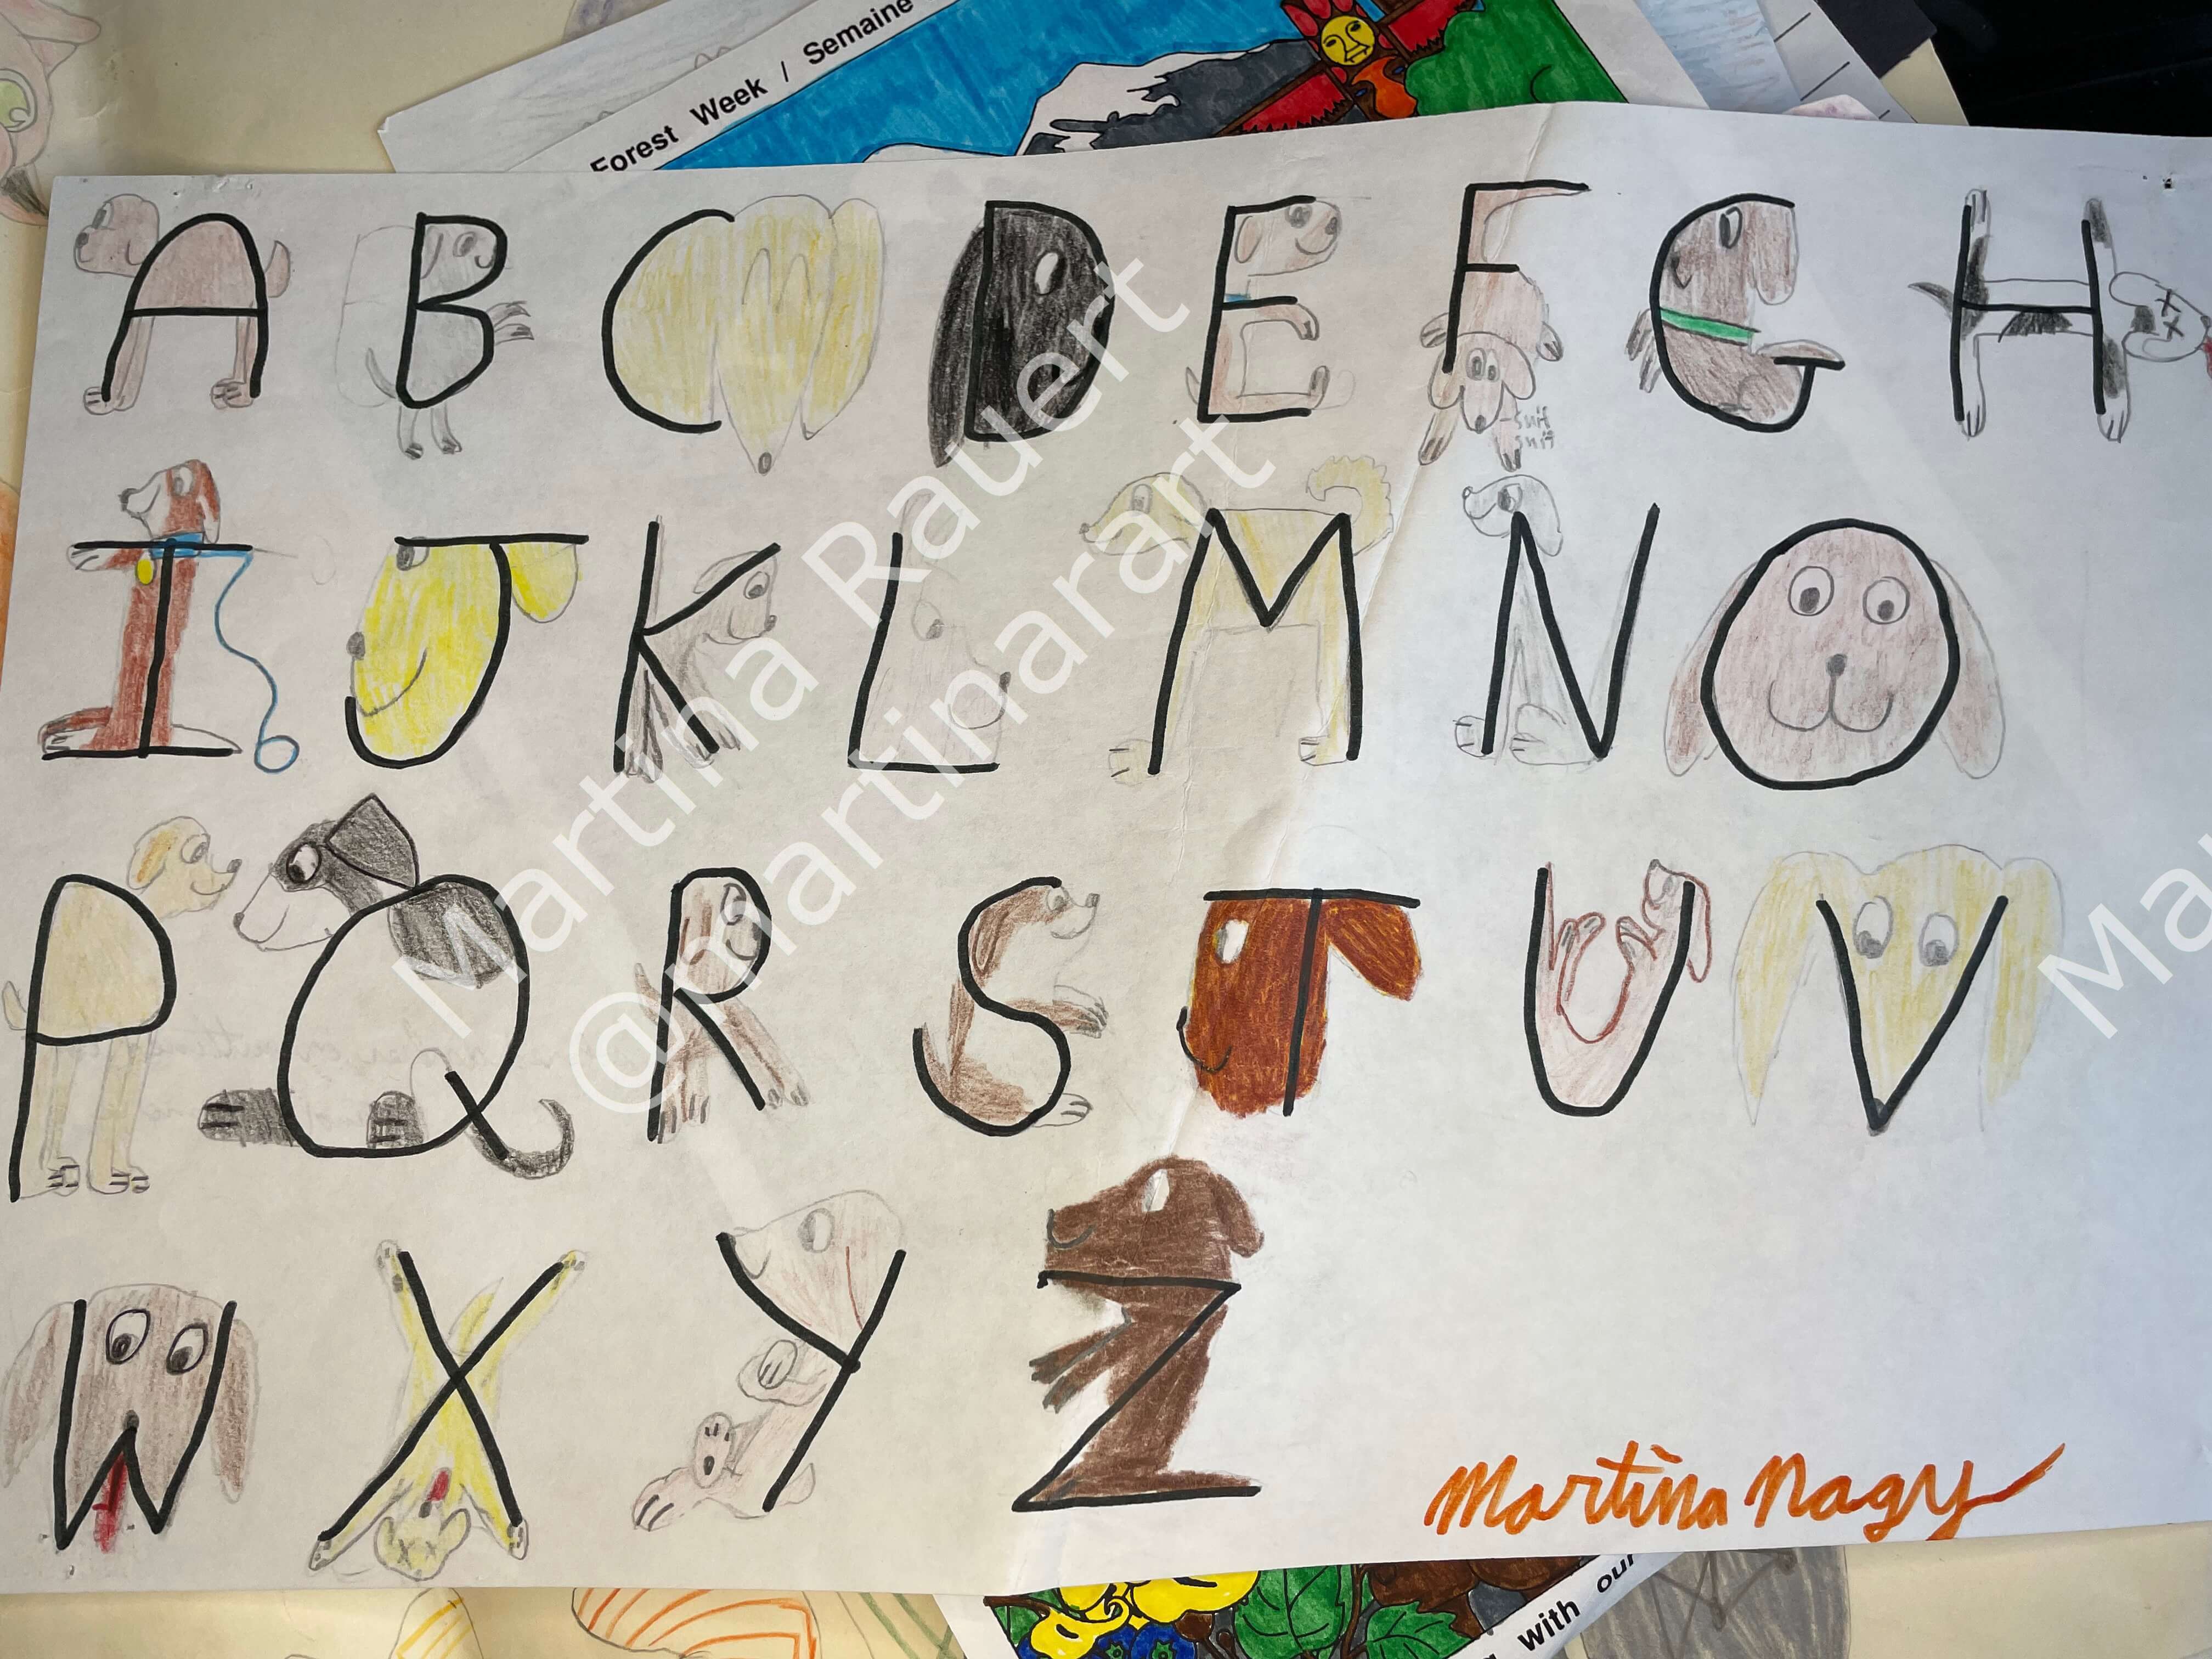 Forest Week / Semaine
A B C D E F G H
snif
snif
I J K L M N O
P Q R S T U V
W X Y Z
Martina Nagy
Martina Rauert
@martinarart
with our